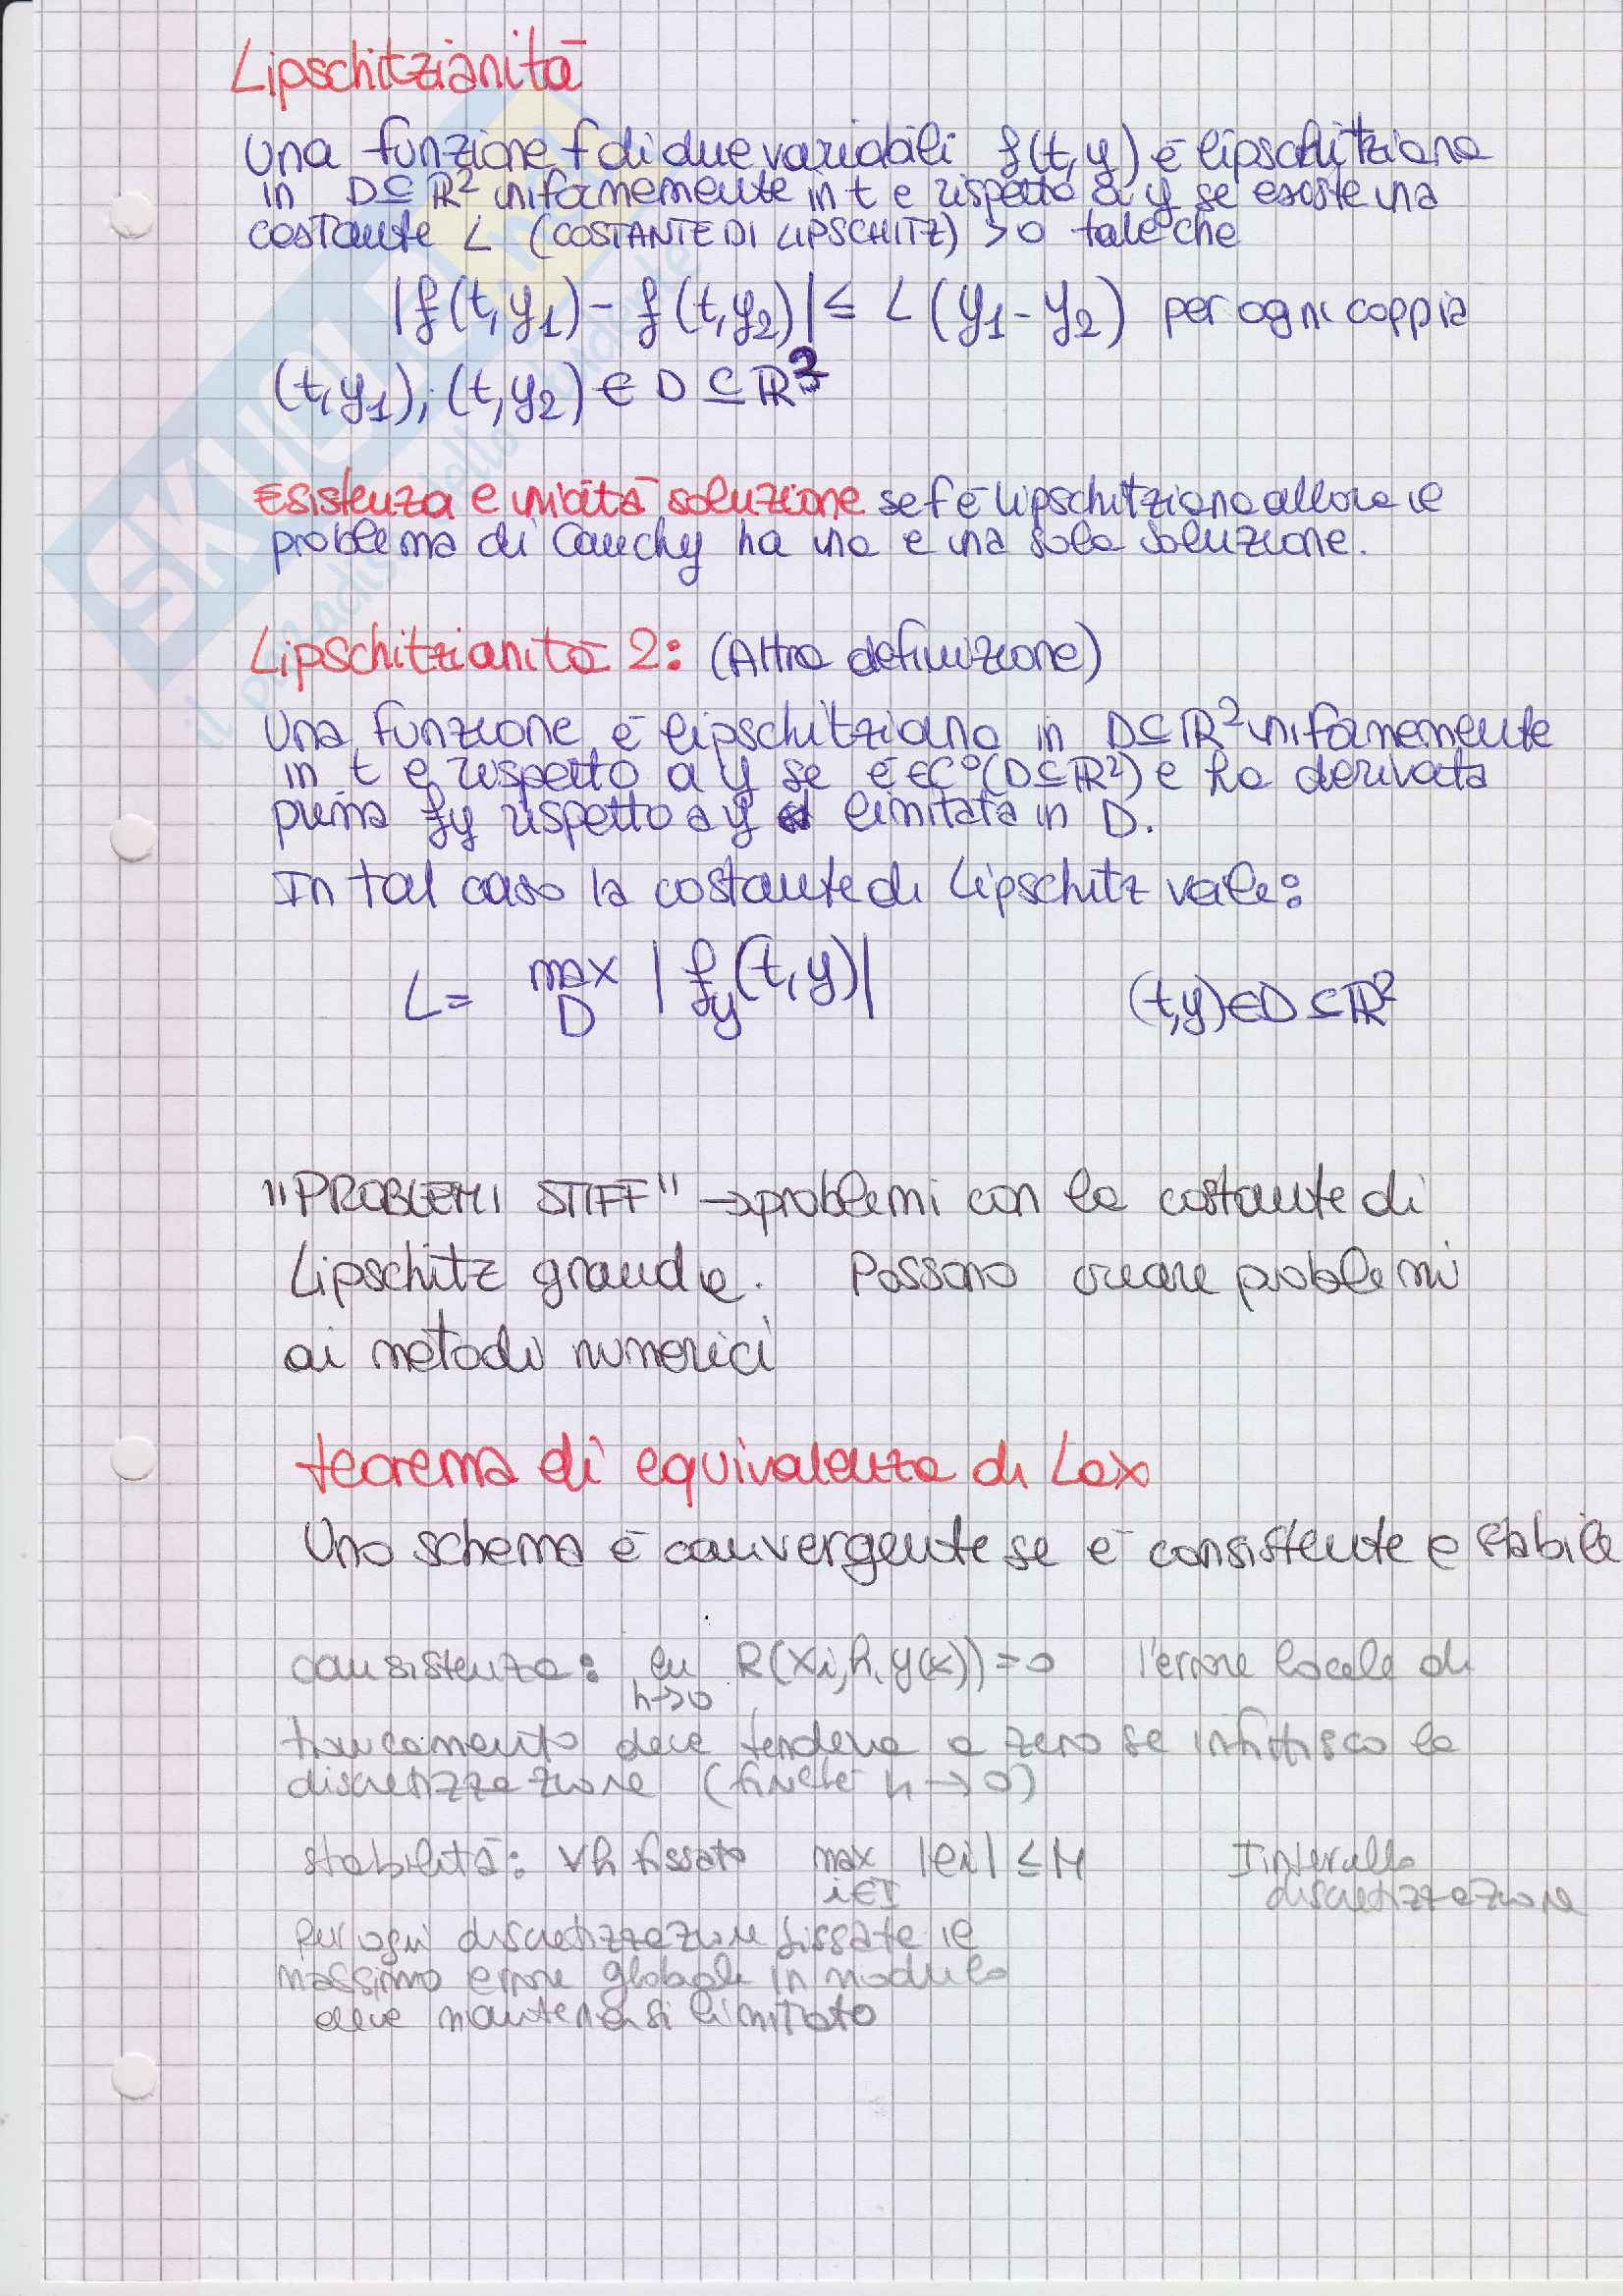 Lipschitzianità
Una funzione f di due variabili f(t,y) è lipschitziana
in D⊆ℝ² uniformemente in t e rispetto a y se esiste una
costante L (COSTANTE DI LIPSCHITZ) >0 tale che
|f(t,y₁) - f(t,y₂)| ≤ L(y₁-y₂) per ogni coppia
(t,y₁); (t,y₂) ∈ D ⊆ ℝ²
Esistenza e unicità soluzione se f è lipschitziana allora il
problema di Cauchy ha una e una sola soluzione.
Lipschitzianità 2: (Altra definizione)
Una funzione è lipschitziana in D⊆ℝ² uniformemente
in t e rispetto a y se è ∈C⁰(D⊆ℝ²) e ha derivata
prima fy rispetto a y limitata in D.
In tal caso la costante di Lipschitz vale:
L= max |fy(t,y)| (t,y)∈D⊆ℝ²
D
"PROBLEMI STIFF" → problemi con la costante di
Lipschitz grande. Possono creare problemi
ai metodi numerici
teorema di equivalenza di Lax
Uno schema è convergente se è consistente e stabile
consistenza: lim R(xi,h,y(x))=0 l'errore locale di
h→0
troncamento deve tendere a zero se infittisco la
discretizzazione (finché h→0)
stabilità: ∀h fissato max |ei| ≤M I intervallo
i∈I discretizzazione
Per ogni discretizzazione fissata il
massimo errore globale in modulo
deve mantenersi limitato
SKUOLA
il paradiso dello studente